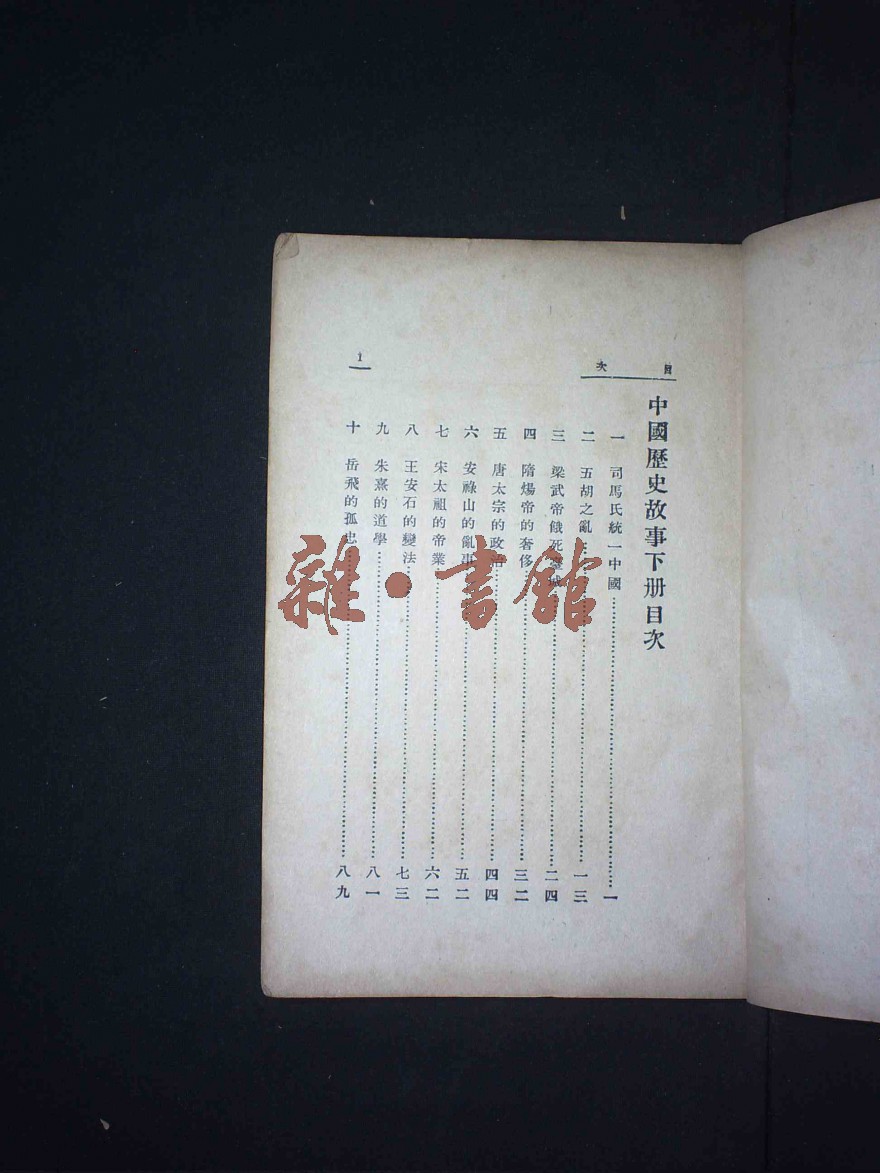 目次
中國歷史故事下册目次
一 司馬氏統一中國……一
二 五胡之亂……一三
三 梁武帝餓死臺城……二四
四 隋煬帝的奢侈……三二
五 唐太宗的政治……四四
六 安祿山的亂事……五二
七 宋太祖的帝業……六二
八 王安石的變法……七三
九 朱熹的道學……八一
十 岳飛的孤忠……八九
1
雜·書館